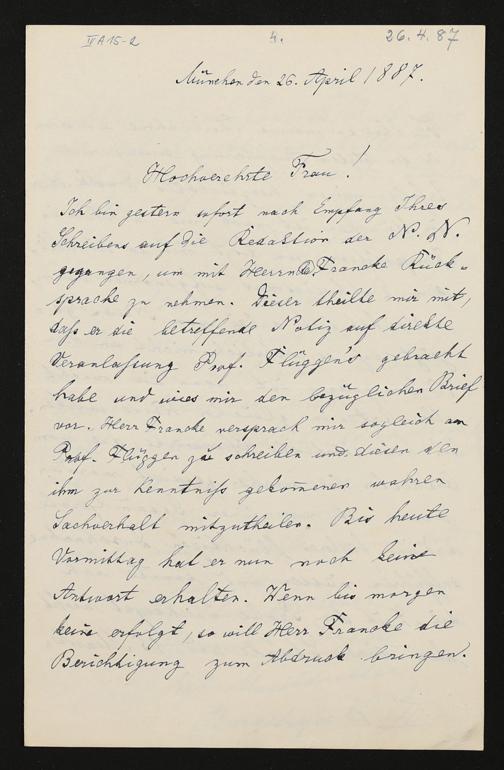 IV A 15-2 4. 26.4.87
München den 26. April 1887.
Hochverehrte Frau!
Ich bin gestern sofort nach Empfang Ihres
Schreibens auf die Redaktion der N. N.
gegangen, um mit Herrn Francke Rück-
sprache zu nehmen. Dieser theilte mir mit,
daß er die betreffende Notiz auf direkte
Veranlaßung Prof. Flüggen's gebracht
habe und wies mir den bezüglichen Brief
vor. Herr Francke versprach mir sogleich an
Prof. Flüggen zu schreiben und diesen den
ihm zur Kenntniß gekom̄enen wahren
Sachverhalt mitzutheilen. Bis heute
Vormittag hat er nun noch keine
Antwort erhalten. Wenn bis morgen
keine erfolgt, so will Herr Francke die
Berichtigung zum Abdruck bringen.